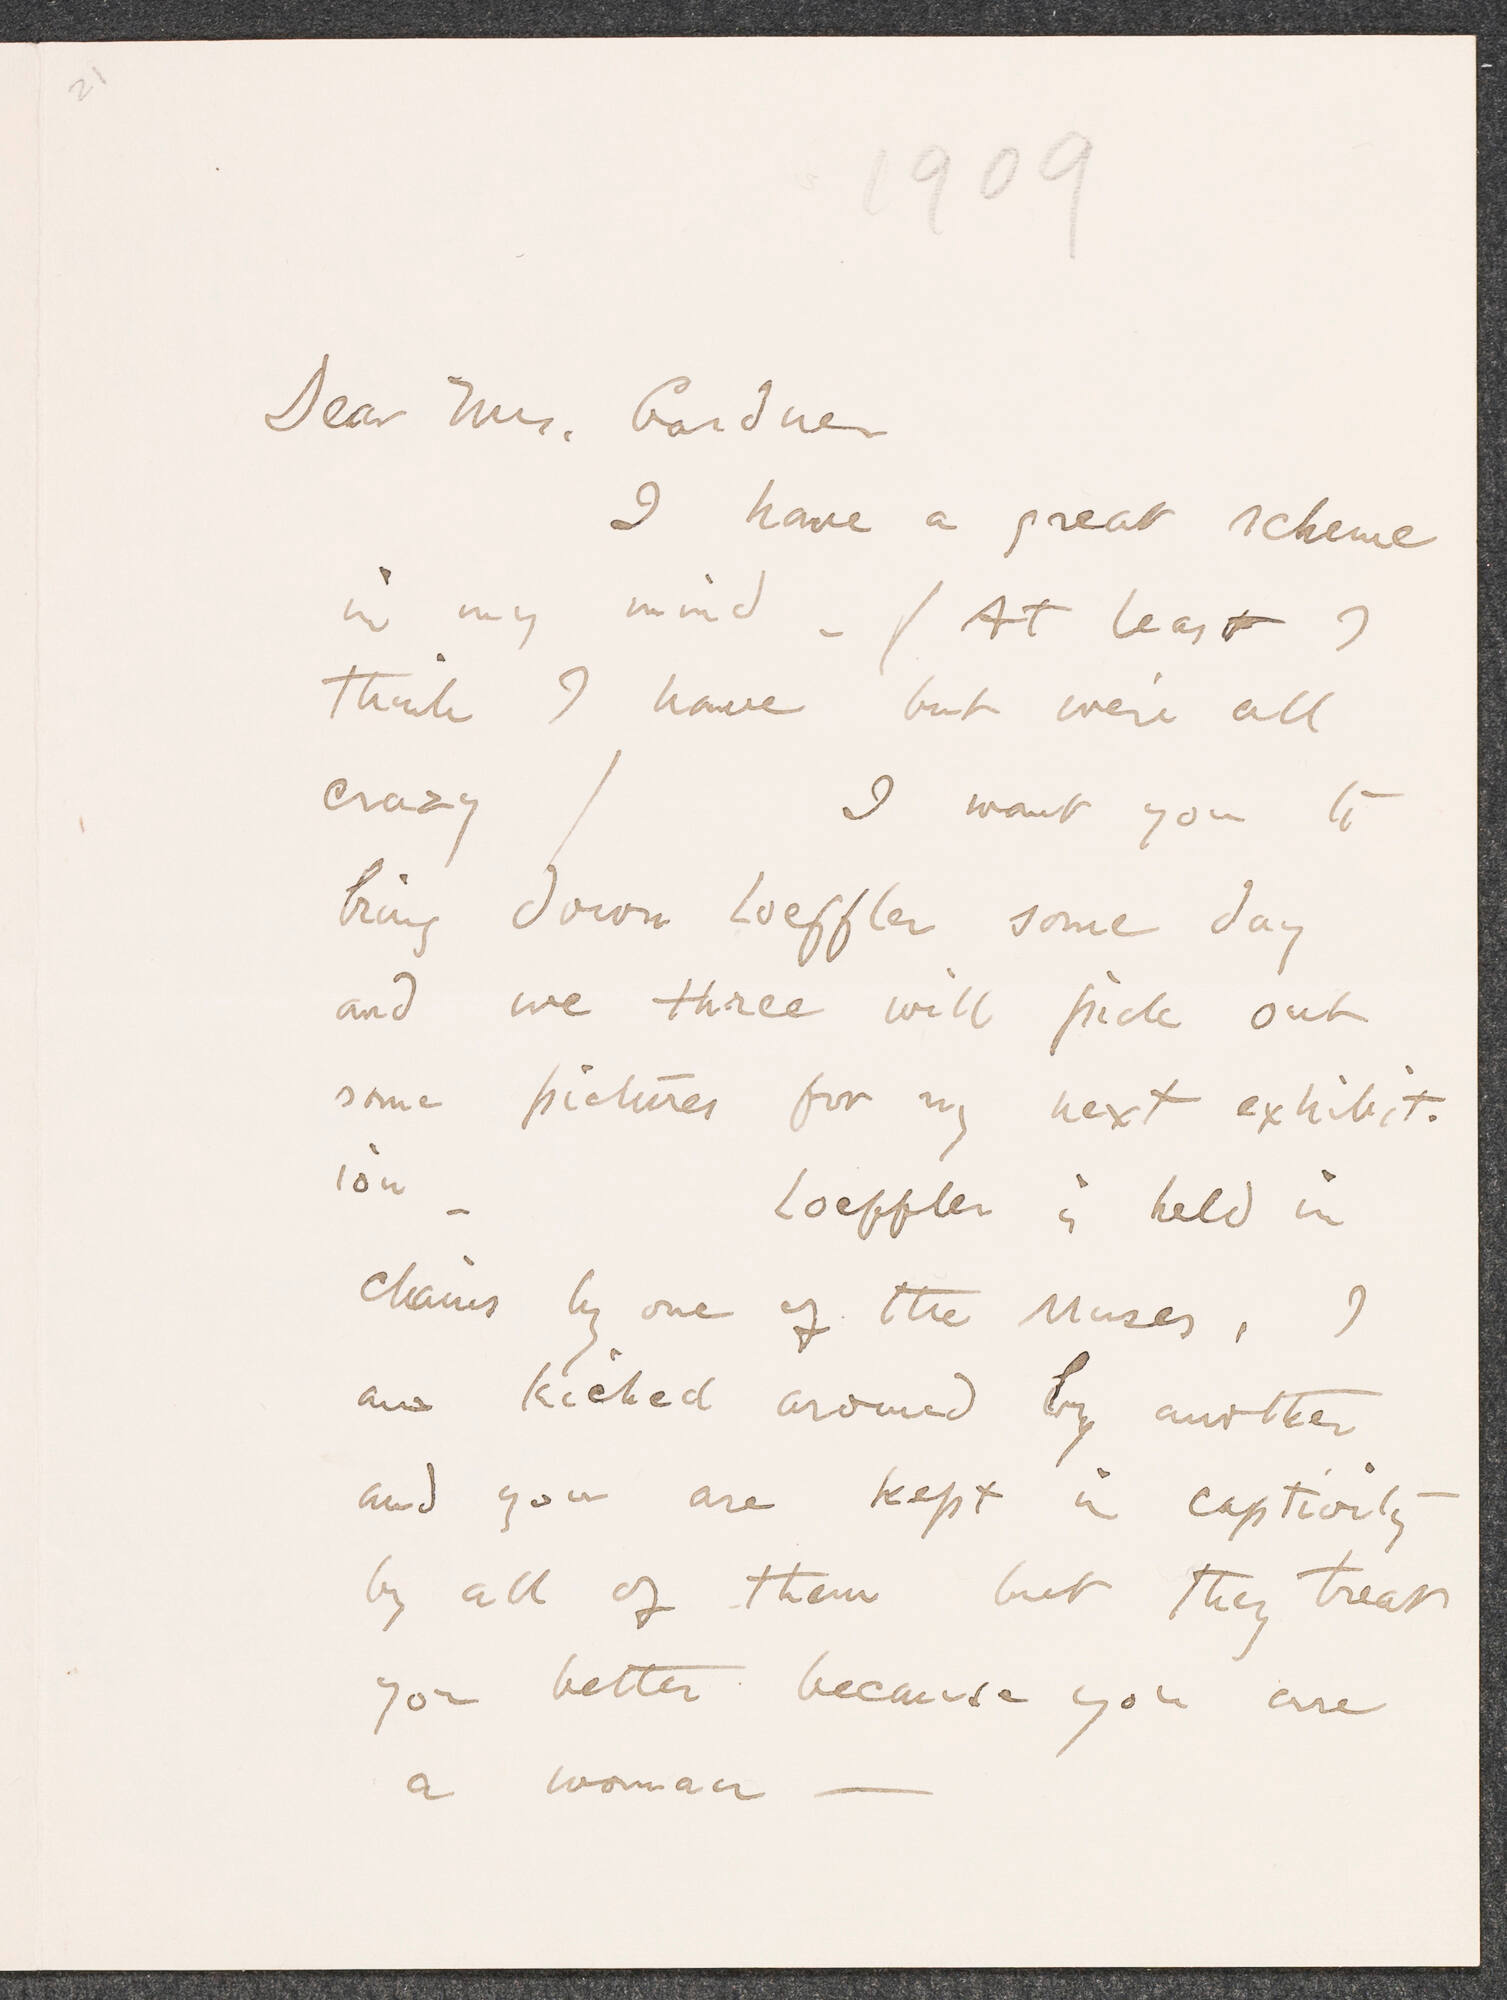 21
1909
Dear Mrs. Gardner
I have a great scheme
in my mind - / At least I
think I have but we're all
crazy / I want you to
bring down Loeffler some day
and we three will pick out
some pictures for my next exhibit-
ion - Loeffler is held in
chains by one of the Muses, I
am kicked around by another
and you are kept in captivity
by all of them but they treat
you better because you are
a woman —